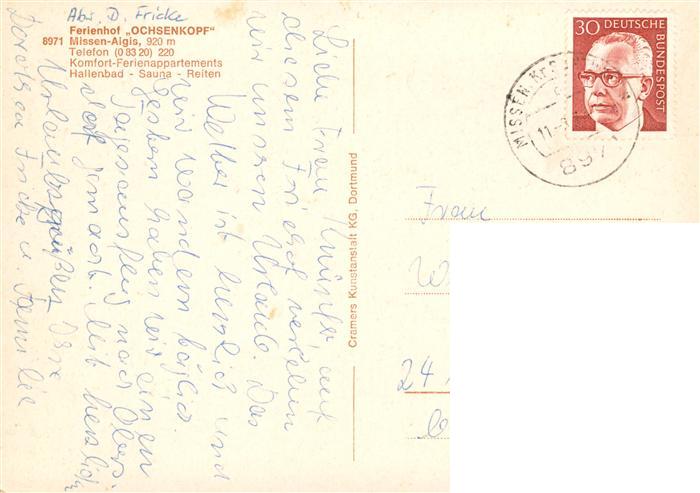 Abs. D. Fricke
Ferienhof „OCHSENKOPF"
8971 Missen-Aigis, 920 m
Telefon (0 83 20) 220
Komfort-Ferienappartements
Hallenbad - Sauna - Reiten
Liebe Frau auf
diesem Friehof verleben
wir unseren Urlaub. Das
Wetter ist herrlich und
wir wandern täglich.
Gestern haben wir einen
Tagesausflug nach Obers-
dorf gemacht. Mit herzlichen
Urlaubsgrüßen Ihre
Dorothea Fricke u. Familie
Cramers Kunstanstalt KG, Dortmund
30 DEUTSCHE BUNDESPOST
MISSEN
11
897
Frau
W
24